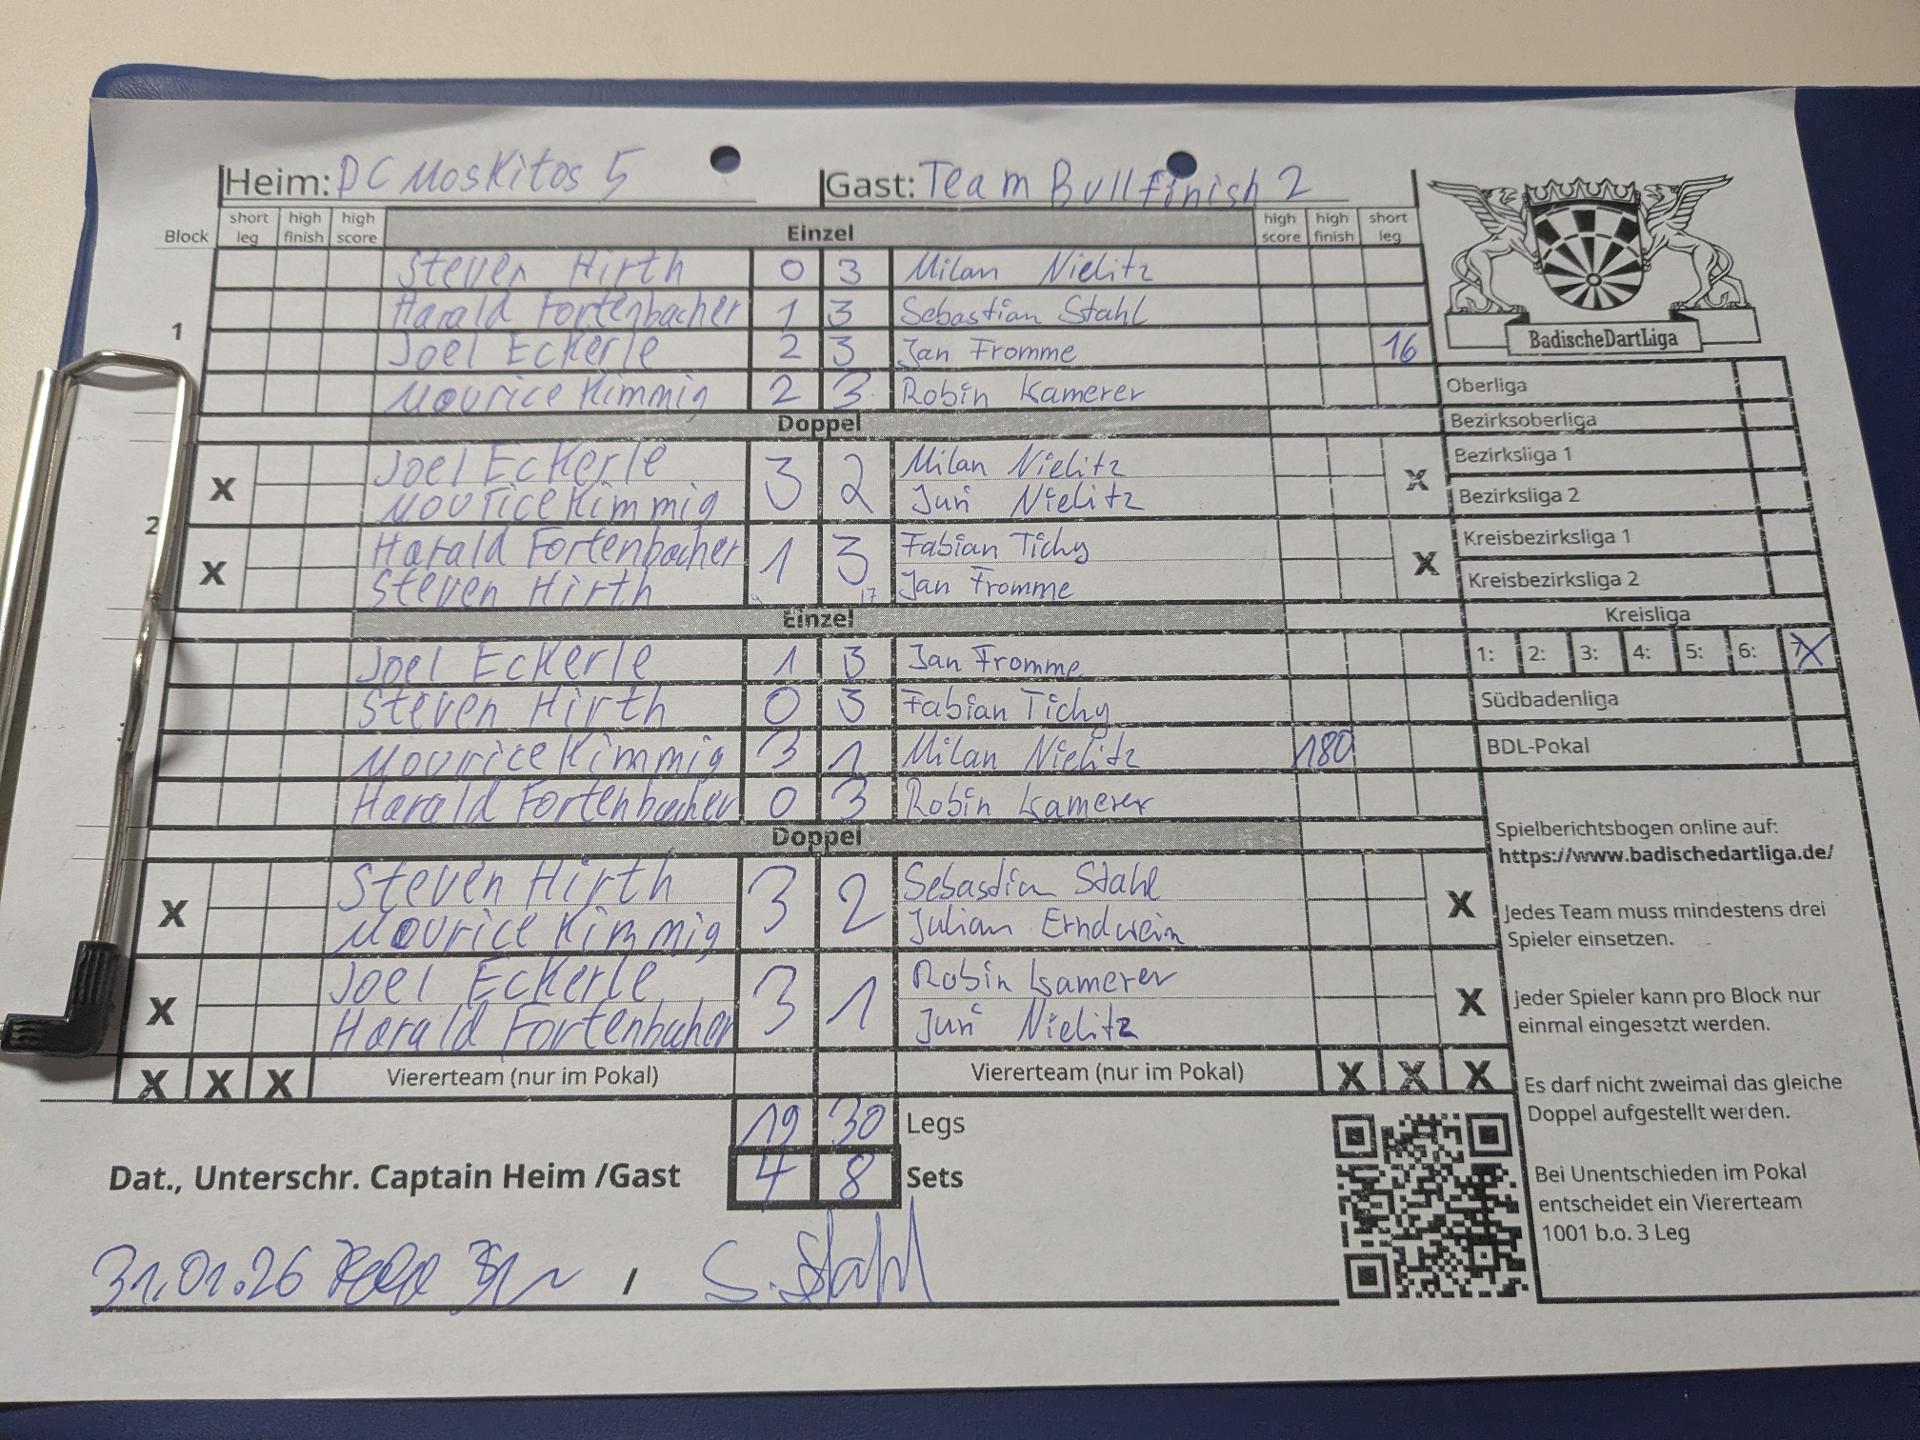 Heim: DC Moskitos 5 Gast: Team Bullfinish 2
Block short leg high finish high score Einzel high score high finish short leg
Steven Hirth 0 3 Milan Nielitz
Harald Fortenbacher 1 3 Sebastian Stahl
1
Joel Eckerle 2 3 Jan Fromme 16
Mourice Kimmig 2 3 Robin Kamerer
Doppel
Joel Eckerle 3 2 Milan Nielitz
X X
Mourice Kimmig Juri Nielitz
2
Harald Fortenbacher 1 3 Fabian Tichy
X X
Steven Hirth 17 Jan Fromme
Einzel
Joel Eckerle 1 3 Jan Fromme
Steven Hirth 0 3 Fabian Tichy
Mourice Kimmig 3 1 Milan Nielitz 180
Harald Fortenbacher 0 3 Robin Kamerer
Doppel
Steven Hirth 3 2 Sebastian Stahl
X X
Mourice Kimmig Julian Erndwein
Joel Eckerle 3 1 Robin Kamerer
X X
Harald Fortenbacher Juri Nielitz
X X X Viererteam (nur im Pokal) Viererteam (nur im Pokal) X X X
19 30 Legs
Dat., Unterschr. Captain Heim /Gast 4 8 Sets
31.01.26 / S. Stahl
BadischeDartLiga
Oberliga
Bezirksoberliga
Bezirksliga 1
Bezirksliga 2
Kreisbezirksliga 1
Kreisbezirksliga 2
Kreisliga
1: 2: 3: 4: 5: 6: 7 X
Südbadenliga
BDL-Pokal
Spielberichtsbogen online auf:
https://www.badischedartliga.de/
Jedes Team muss mindestens drei
Spieler einsetzen.
Jeder Spieler kann pro Block nur
einmal eingesetzt werden.
Es darf nicht zweimal das gleiche
Doppel aufgestellt werden.
Bei Unentschieden im Pokal
entscheidet ein Viererteam
1001 b.o. 3 Leg